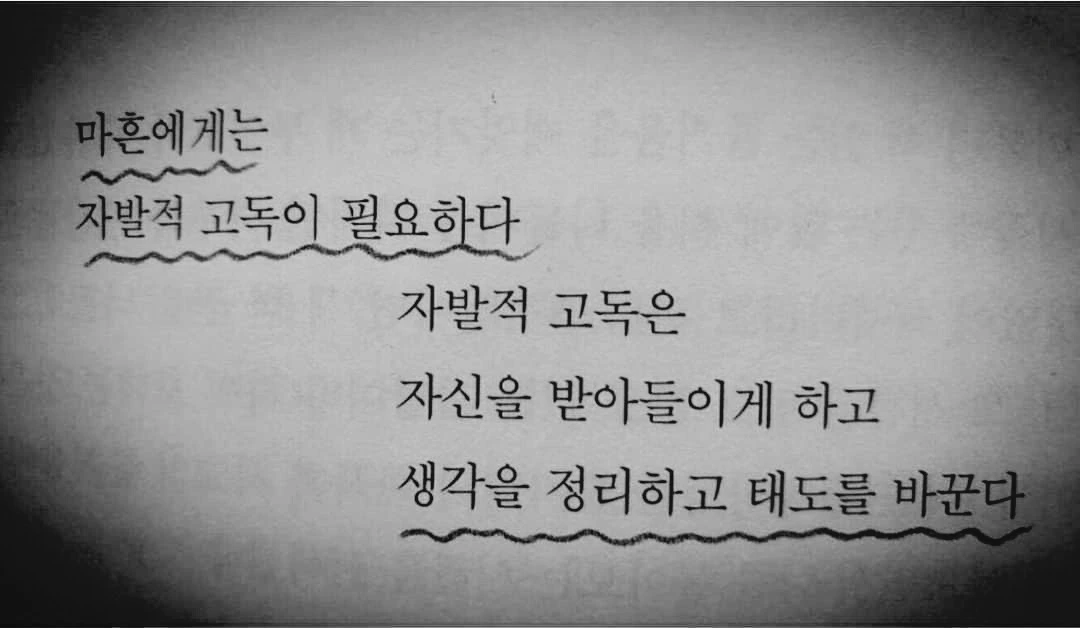 마흔에게는
자발적 고독이 필요하다
자발적 고독은
자신을 받아들이게 하고
생각을 정리하고 태도를 바꾼다